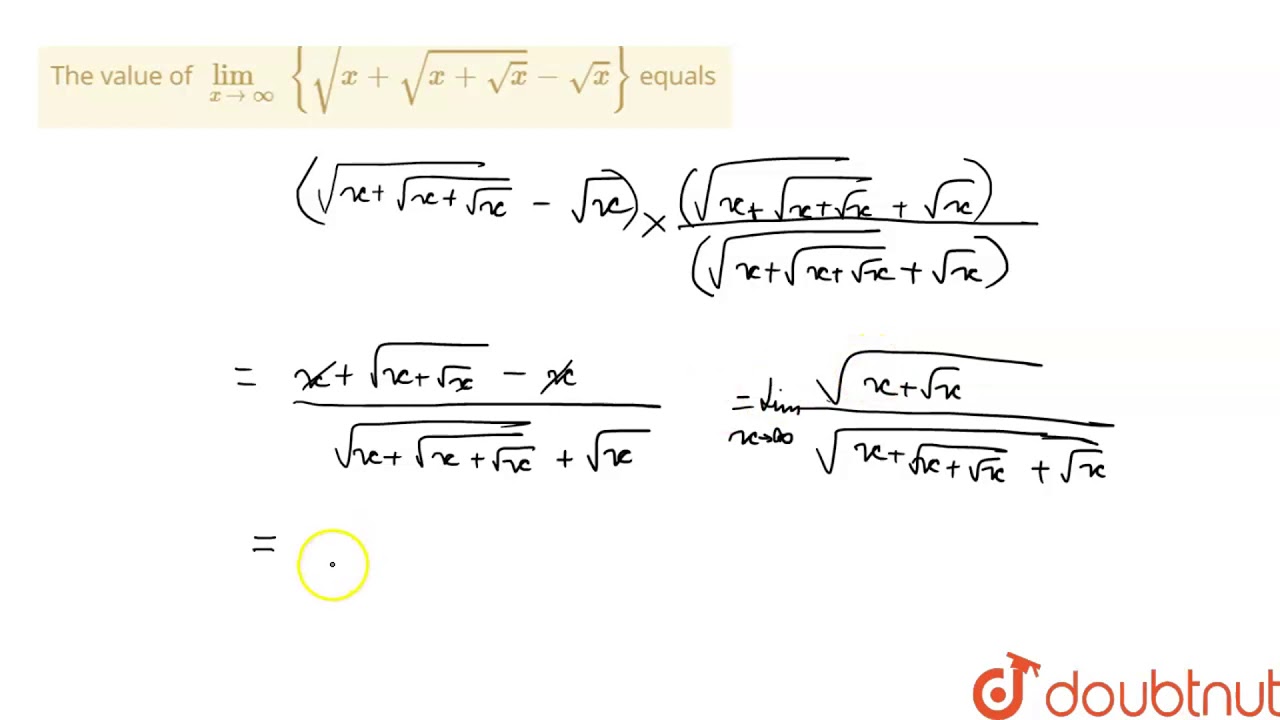 The value of lim x→∞ {√(x + √(x + √x)) − √x} equals
(√(x+√(x+√x)) − √x) × (√(x+√(x+√x)) + √x) / (√(x+√(x+√x)) + √x)
= (x + √(x+√x) − x) / (√(x+√(x+√x)) + √x)
= lim x→∞ √(x+√x) / (√(x+√(x+√x)) + √x)
=
doubtnut